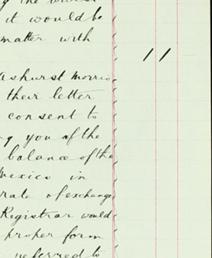 it would be
matter with
11
Ashurst Morris
their letter
consent to
you of the
balance of the
Mexico in
rate of exchange
Registrar would
proper form
referred to